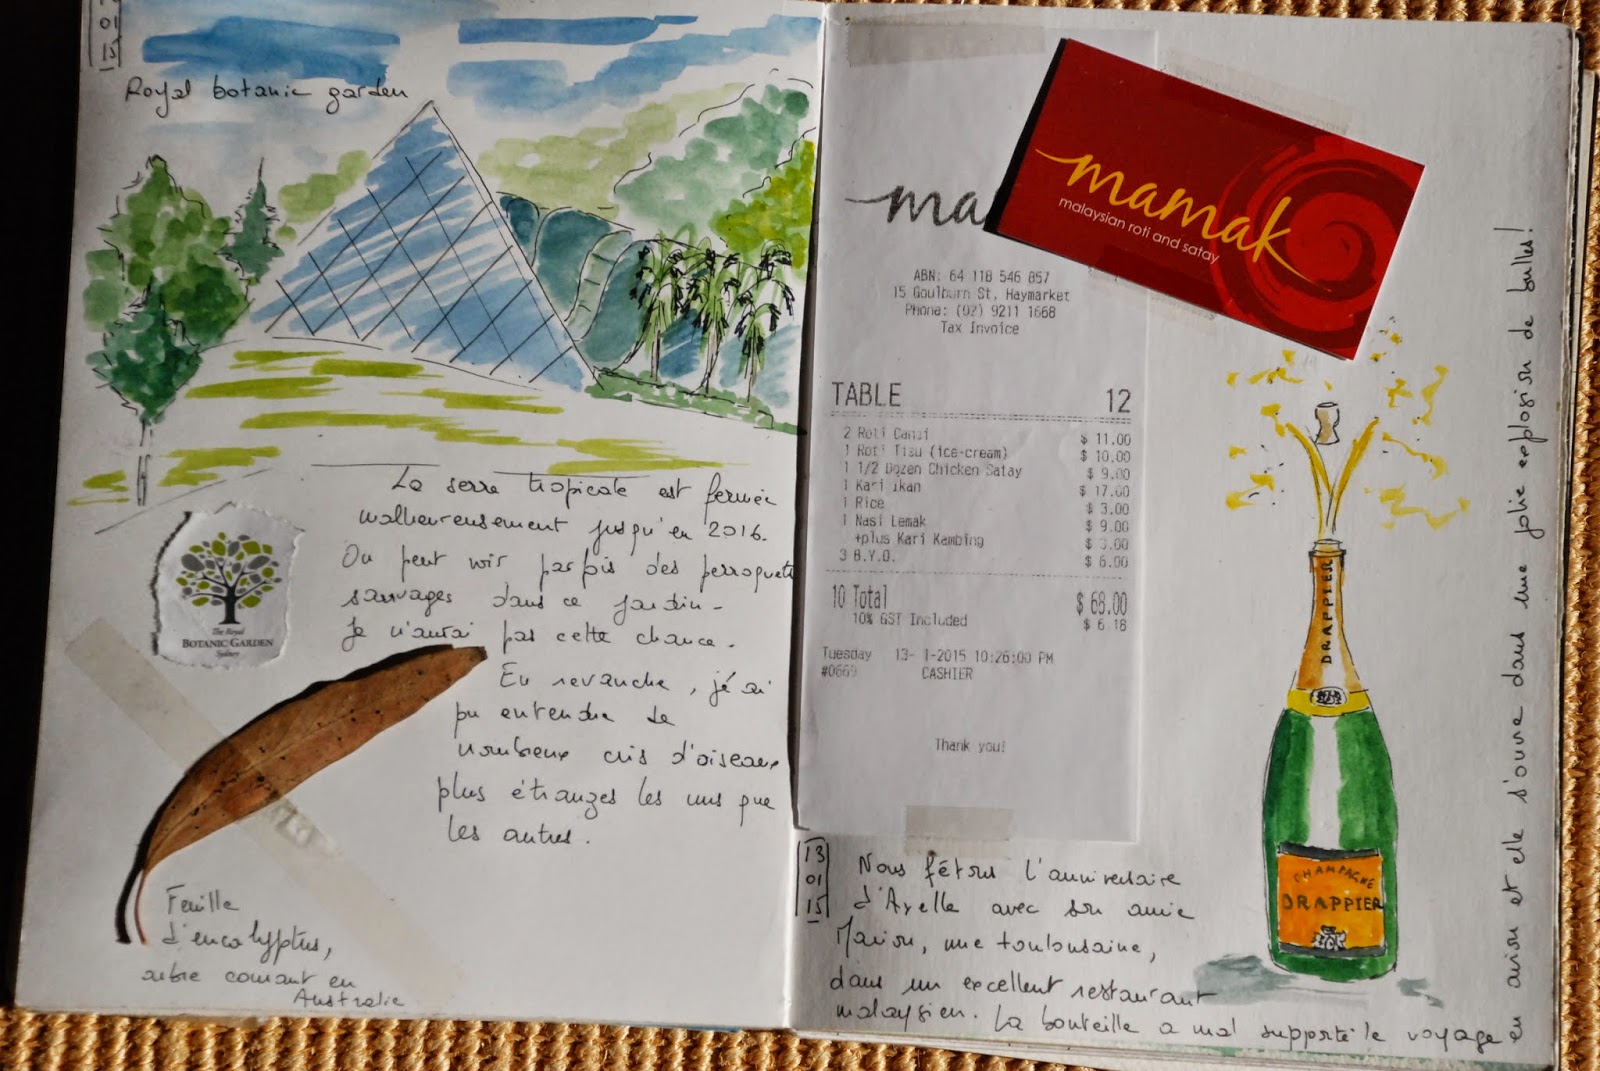 01
15
Royal botanic garden
La serre tropicale est fermée
malheureusement jusqu'en 2016.
On peut voir parfois des perroquets
sauvages dans ce jardin.
Je n'aurai pas cette chance.
En revanche, j'ai
pu entendre de
nombreux cris d'oiseaux
plus étranges les uns que
les autres.
The Royal
BOTANIC GARDEN
Sydney
Feuille
d'eucalyptus,
arbre courant en
Australie
ma
mamak
malaysian roti and satay
ABN: 64 118 546 857
15 Goulburn St, Haymarket
Phone: (02) 9211 1668
Tax Invoice
TABLE 12
2 Roti Canai $ 11.00
1 Roti Tisu (ice-cream) $ 10.00
1 1/2 Dozen Chicken Satay $ 9.00
1 Kari Ikan $ 17.00
1 Rice $ 3.00
1 Nasi Lemak $ 9.00
+plus Kari Kambing $ 3.00
3 B.Y.O. $ 6.00
10 Total $ 68.00
10% GST Included $ 6.18
Tuesday 13- 1-2015 10:26:00 PM
#0669 CASHIER
Thank you!
DRAPPIER
CHAMPAGNE
DRAPPIER
13
01
15
Nous fêtons l'anniversaire
d'Axelle avec son amie
Marion, une toulousaine,
dans un excellent restaurant
malaysien. La bouteille a mal supporté le voyage en
avion et elle s'ouvre dans une jolie explosion de bulles!